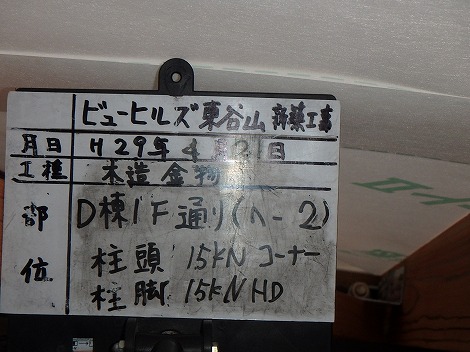 ビューヒルズ東谷山 新築工事
月日 H29年4月21日
工種 木造金物
部位 D棟1F通り(ハ-2)
柱頭 15kN コーナー
柱脚 15kN HD